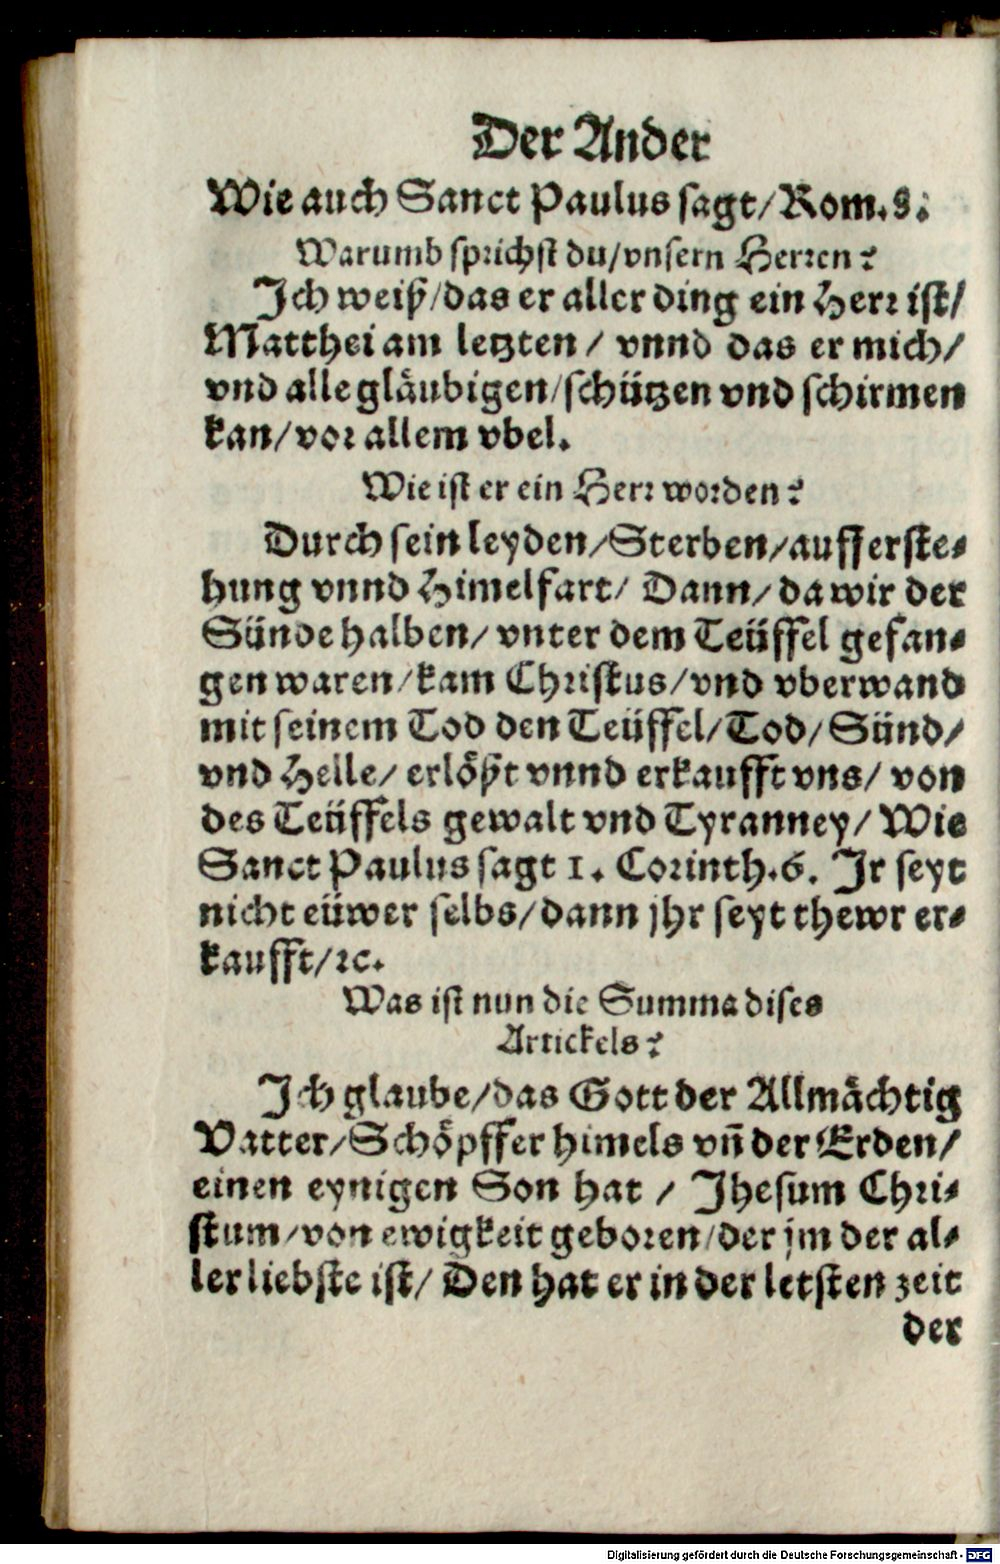 Der Ander
Wie auch Sanct Paulus sagt/ Rom. 8.
Warumb sprichst du/ vnsern Herren?
Ich weiß/ das er aller ding ein Herr ist/
Matthei am letzten/ vnnd das er mich/
vnd alle gläubigen/ schützen vnd schirmen
kan/ vor allem vbel.
Wie ist er ein Herr worden?
Durch sein leyden/ Sterben/ aufferste-
hung vnnd Himelfart/ Dann/ da wir der
Sünde halben/ vnter dem Teüffel gefan-
gen waren/ kam Christus/ vnd vberwand
mit seinem Tod den Teüffel/ Tod/ Sünd/
vnd Helle/ erlößt vnnd erkaufft vns/ von
des Teüffels gewalt vnd Tyranney/ Wie
Sanct Paulus sagt 1. Corinth. 6. Ir seyt
nicht eüwer selbs/ dann jhr seyt thewr er-
kaufft/ ꝛc.
Was ist nun die Summa dises
Artickels?
Ich glaube/ das Gott der Allmächtig
Vatter/ Schöpffer himels vñ der Erden/
einen eynigen Son hat/ Jhesum Chri-
stum/ von ewigkeit geboren/ der jm der al-
ler liebste ist/ Den hat er in der letsten zeit
der
Digitalisierung gefördert durch die Deutsche Forschungsgemeinschaft - DFG